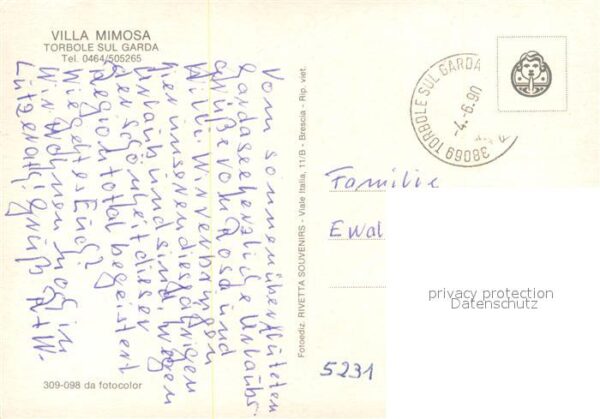 VILLA MIMOSA
TORBOLE SUL GARDA
Tel. 0464/505265
Vom sonnenüberfluteten
Gardasee herzliche Urlaubs-
grüße von Rosa und
Willi. Wir verbringen
hier unseren diesjährigen
Urlaub und sind wegen
der Schönheit dieser
Region total begeistert
Wie geht es Euch?
Wir wohnen noch in
Lützerath! Gruß R+W.
309-098 da fotocolor
Fotoediz. RIVETTA SOUVENIRS - Viale Italia, 11/B - Brescia - Rip. viet.
38069 TORBOLE SUL GARDA
-4.-6.90
Familie
Ewal
privacy protection
Datenschutz
5231